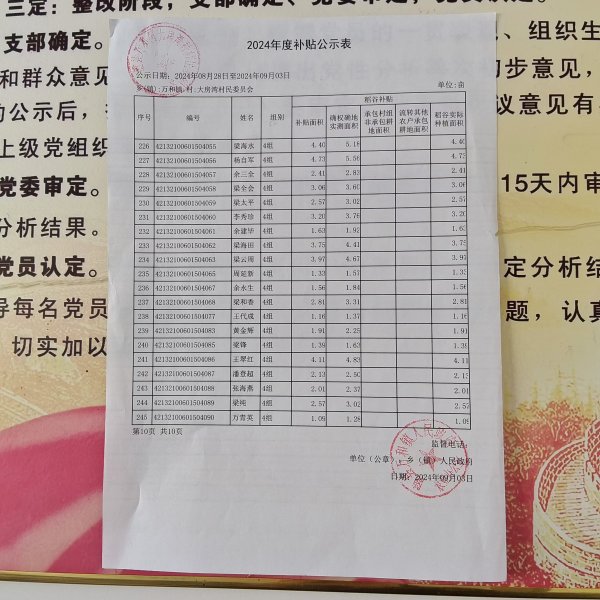 三定：整改阶段，支部确定、党委审定、党员认定。
支部确定。
组织生
和群众意见
初步意见，
的公示后，
议意见有
上级党组织
党委审定。
15天内审
分析结果。
党员认定。
定分析结
导每名党员
题，认真
切实加以
2024年度补贴公示表
公示日期：2024年08月28日至2024年09月03日
乡(镇):万和镇 村:大房湾村民委员会 单位:亩
序号 编号 姓名 组别 稻谷补贴
补贴面积 确权确地实测面积 承包村组非承包耕地面积 流转其他农户承包耕地面积 稻谷实际种植面积
226 42132100601504055 梁海水 4组 4.40 5.18 4.40
227 42132100601504056 杨自军 4组 4.73 5.56 4.73
228 42132100601504057 余三全 4组 2.41 2.83 2.41
229 42132100601504058 梁全会 4组 3.06 3.60 3.06
230 42132100601504059 梁太平 4组 2.57 3.02 2.57
231 42132100601504060 李秀珍 4组 3.20 3.76 3.20
232 42132100601504061 余建华 4组 1.63 1.92 1.63
233 42132100601504062 梁海田 4组 3.75 4.41 3.75
234 42132100601504063 梁云周 4组 3.97 4.67 3.97
235 42132100601504065 周延新 4组 1.33 1.57 1.33
236 42132100601504067 余永生 4组 1.56 1.84 1.56
237 42132100601504068 梁和香 4组 2.81 3.31 2.81
238 42132100601504077 王代成 4组 1.16 1.37 1.16
239 42132100601504083 黄金辉 4组 1.91 2.25 1.91
240 42132100601504085 梁锋 4组 1.39 1.63 1.39
241 42132100601504086 王翠红 4组 4.11 4.83 4.11
242 42132100601504087 潘登超 4组 2.13 2.50 2.13
243 42132100601504088 张海燕 4组 2.01 2.37 2.01
244 42132100601504089 梁纯 4组 2.57 3.02 2.57
245 42132100601504090 万菁英 4组 1.09 1.28 1.09
第10页 共10页
监督电话:
单位（公章）：乡（镇）人民政府
日期：2024年09月03日